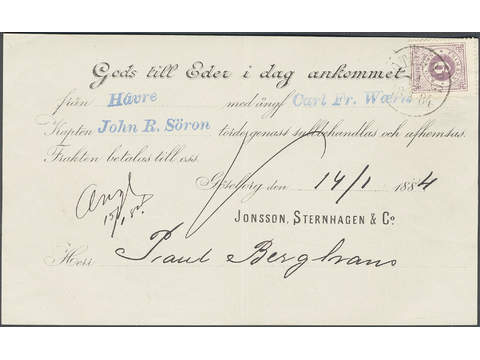 Gods till Eder i dag ankommet
från Håvre med ångf. Carl Fr. Wærn
Kapten John R. Söron torde genast tullbehandlas och afhemtas.
Frakten betalas till oss.
Göteborg den 14/1 1884
JONSSON, STERNHAGEN & Co.
Herr Paul Berghaus